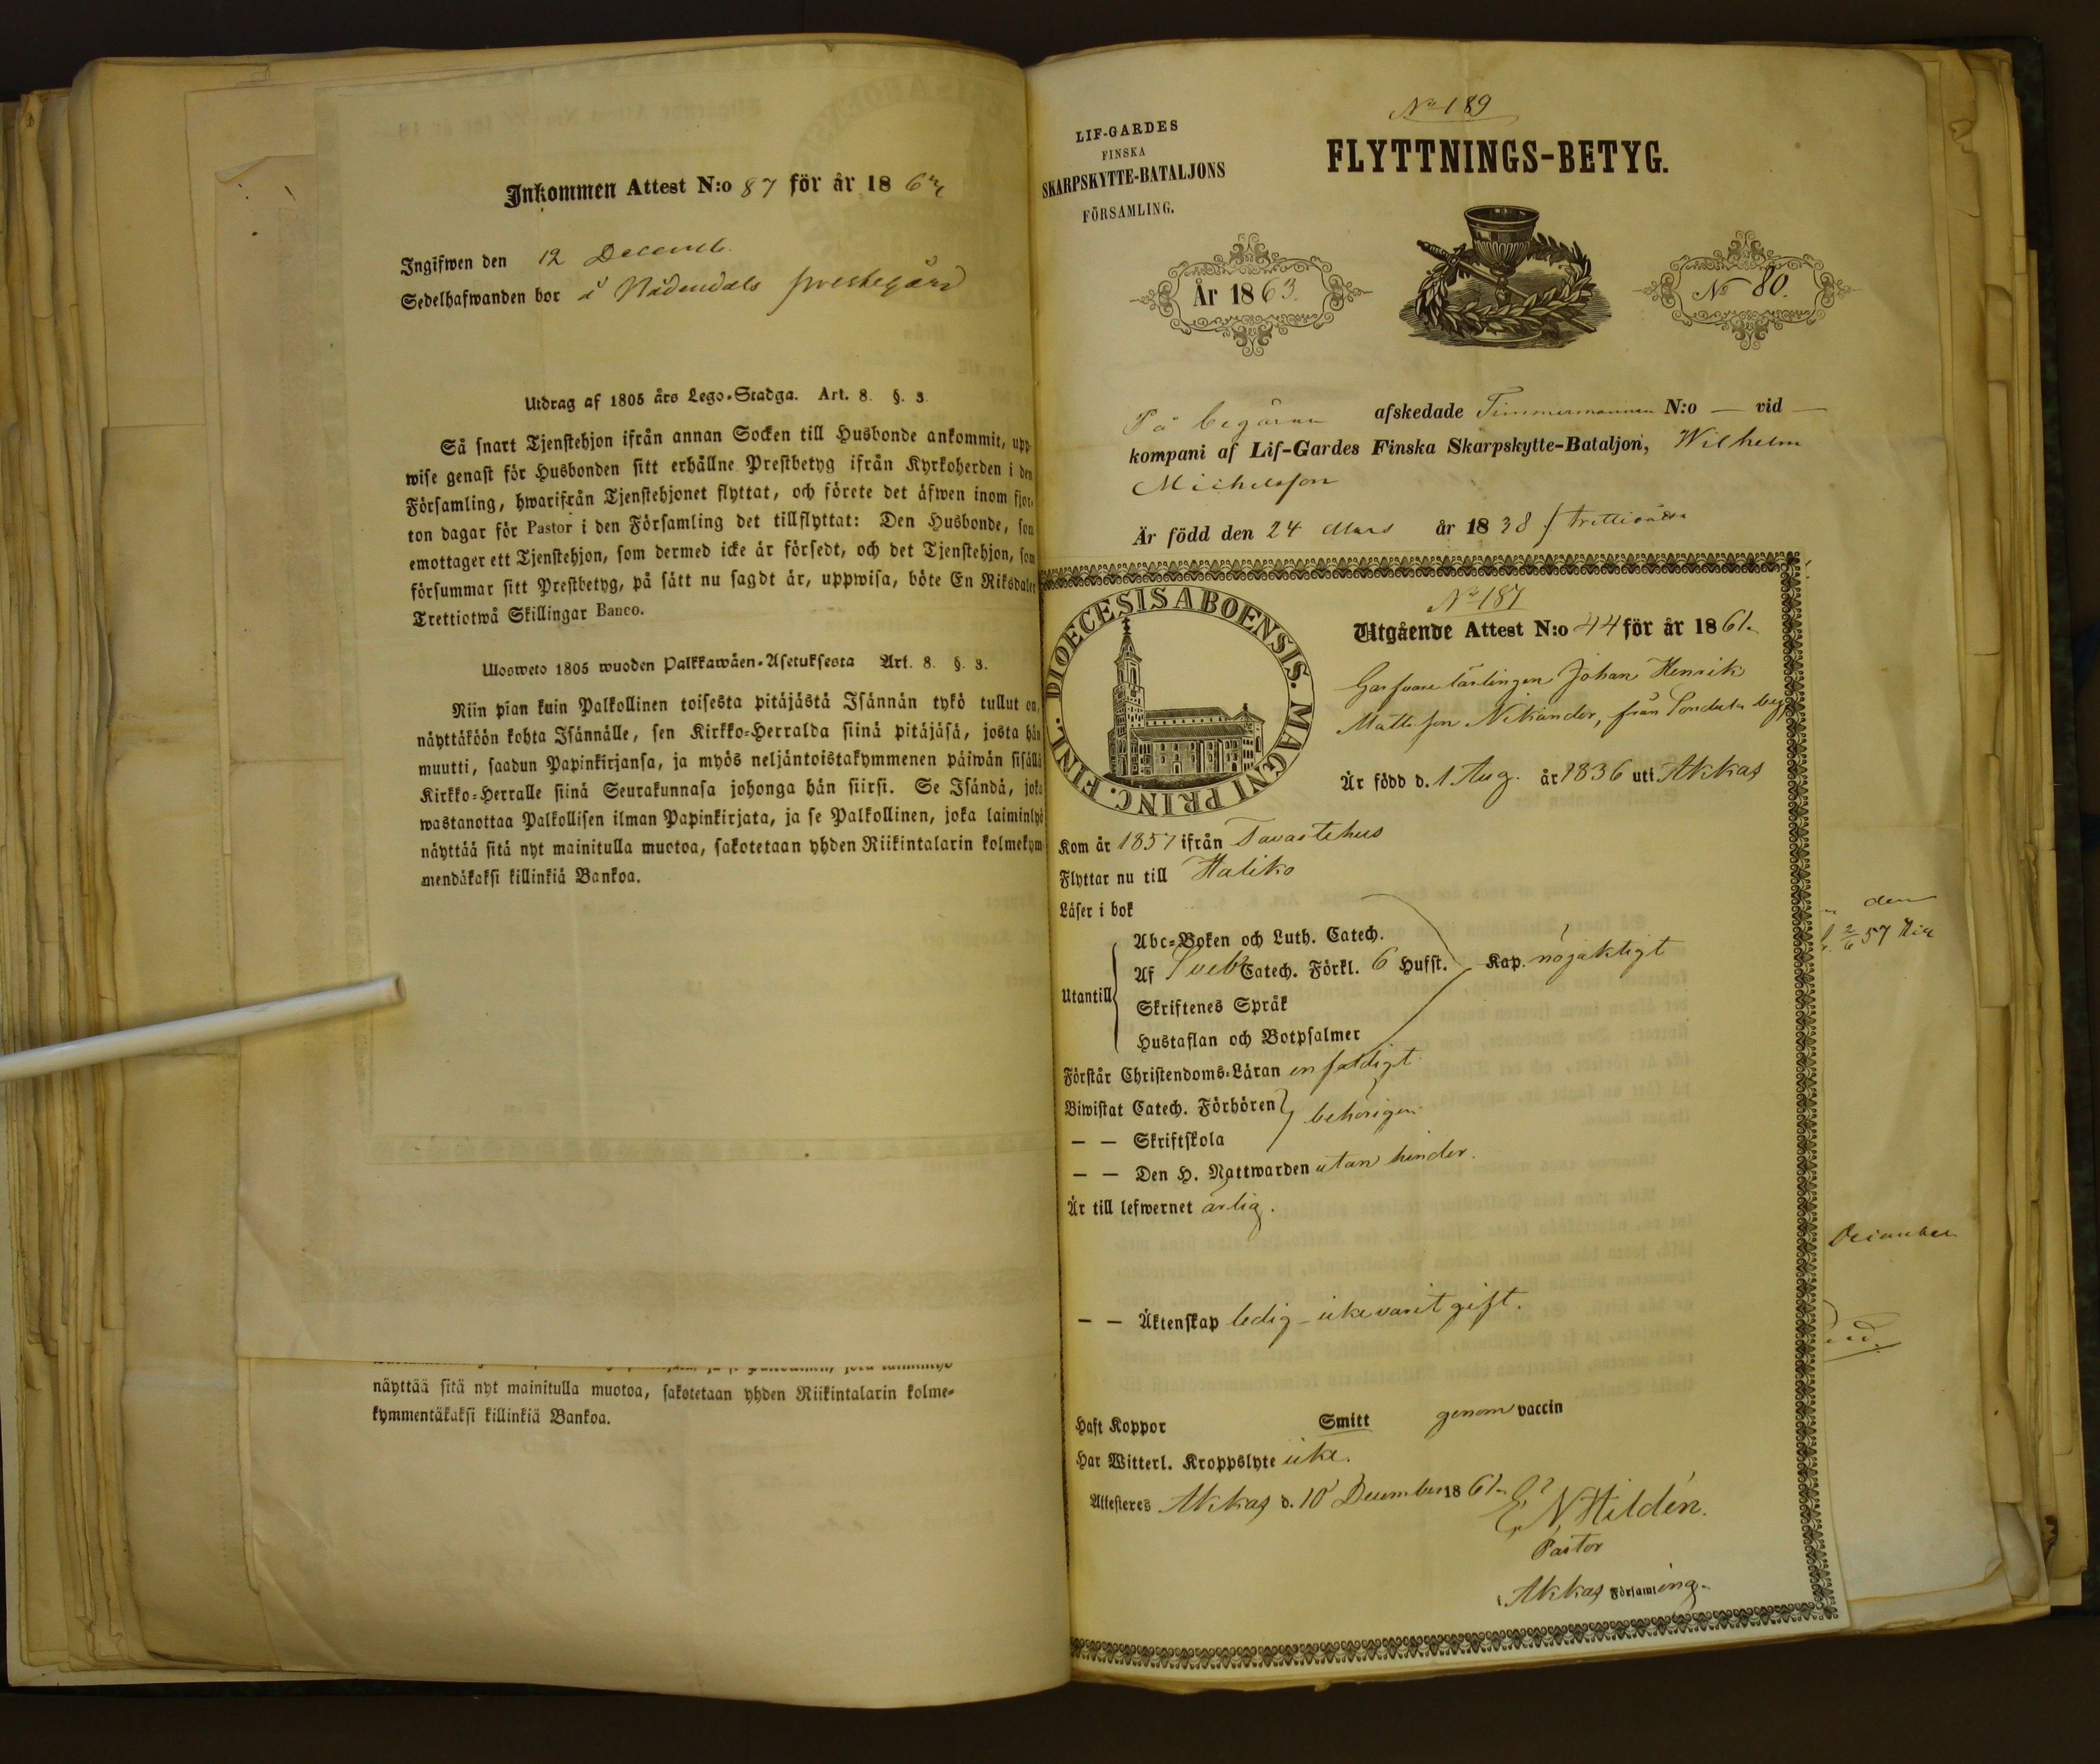 Inkommen Attest N:o 87 för år 186
Ingifwen den 12 Decemb.
Sedelhafwanden bor i Nådendals prestegård
Utdrag af 1805 års Lego-Stadga. Art. 8. §. 3.
Så snart Tjenstehjon ifrån annan Socken till Husbonde ankommit, upp-
wise genast för Husbonden sitt erhållne Prestbetyg ifrån Kyrkoherden i den
Församling, hwarifrån Tjenstehjonet flyttat, och förete det äfwen inom fjor-
ton dagar för Pastor i den Församling det tillflyttat: Den Husbonde, som
emottager ett Tjenstehjon, som dermed icke är försedt, och det Tjenstehjon, som
försummar sitt Prestbetyg, på sätt nu sagdt är, uppwisa, böte En Riksdaler
Trettiotwå Skillingar Banco.
Ulosweto 1805 wuoden Palkkawäen-Asetuksesta Art. 8. §. 3.
Niin pian kuin Palkollinen toisesta pitäjästä Isännän tykö tullut on,
näyttäköön kohta Isännälle, sen Kirkko-Herralda siinä pitäjäsä, josta hän
muutti, saadun Papinkirjansa, ja myös neljäntoistakymmenen päiwän sisällä
Kirkko-Herralle siinä Seurakunnasa johonga hän siirsi. Se Isändä, joka
wastanottaa Palkollisen ilman Papinkirjata, ja se Palkollinen, joka laiminlyö
näyttää sitä nyt mainitulla muotoa, sakotetaan yhden Riikintalarin kolmekym
mendäkaksi killinkiä Bankoa.
näyttää sitä nyt mainitulla muotoa, sakotetaan yhden Riikintalarin kolme-
kymmentäkaksi killinkiä Bankoa.
No 189
LIF-GARDES
FINSKA
SKARPSKYTTE-BATALJONS
FÖRSAMLING.
FLYTTNINGS-BETYG.
År 1863.
No 80.
På begäran afskedade Timmermannen N:o — vid —
kompani af Lif-Gardes Finska Skarpskytte-Bataljon, Wilhelm
Michelsson
Är född den 24 Mars år 1838 / trettioåtta
DIOECESIS ABOENSIS. MAGNI PRINC. FINL.
No 187
Utgående Attest N:o 44 för år 1861.
Garfvare lärlingen Johan Henrik
Mattsson Nikander, från
Är född d. 1. Aug. år 1836 uti Akkas
Kom år 1857 ifrån Tavastehus
Flyttar nu till Haliko
Läser i bok
Abc-Boken och Luth. Catech.
Utantill Af Sveb. Catech. Förkl. 6 Hufst. Kap. nöjaktigt
Skriftenes Språk
Hustaflan och Botpsalmer
Förstår Christendoms-Läran enfaldigt
Biwistat Catech. Förhören behörigen
— — Skriftskola
— — Den H. Nattwarden utan hinder.
Är till lefwernet ärlig.
— — Äktenskap ledig - icke varit gift.
Haft Koppor Smitt genom vaccin
Har Witterl. Kroppslyte icke.
Attesteres Akkas d. 10 December 1861.
N Hildén.
Pastor
Akkas Församling.
den
57
December